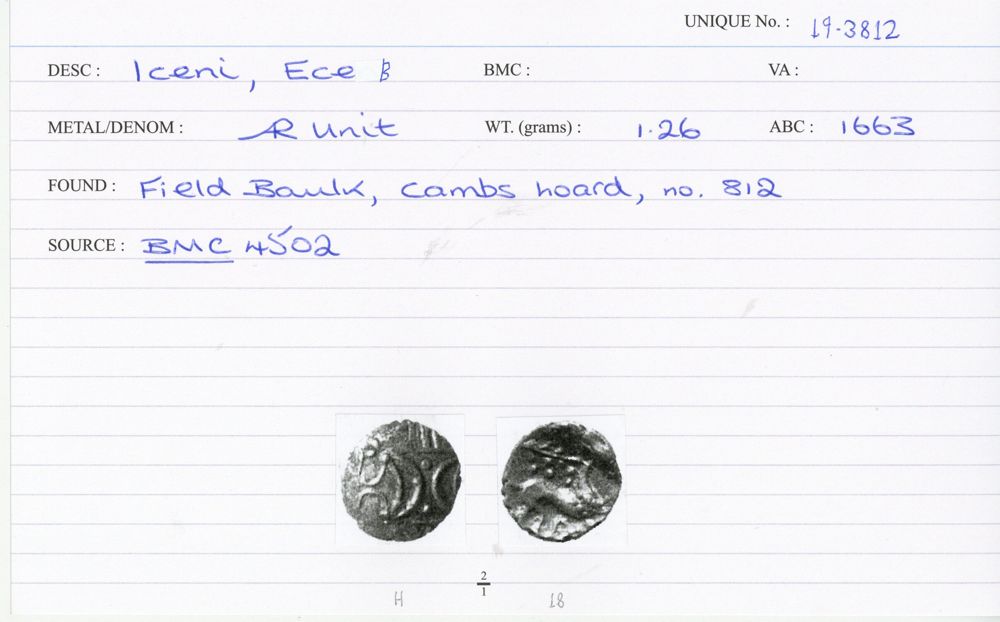 UNIQUE No. : 19-3812
DESC : Iceni, Ece B BMC : VA :
METAL/DENOM : AR Unit WT. (grams) : 1.26 ABC : 1663
FOUND : Field Baulk, Cambs hoard, no. 812
SOURCE : BMC 4502
2
1
H 18